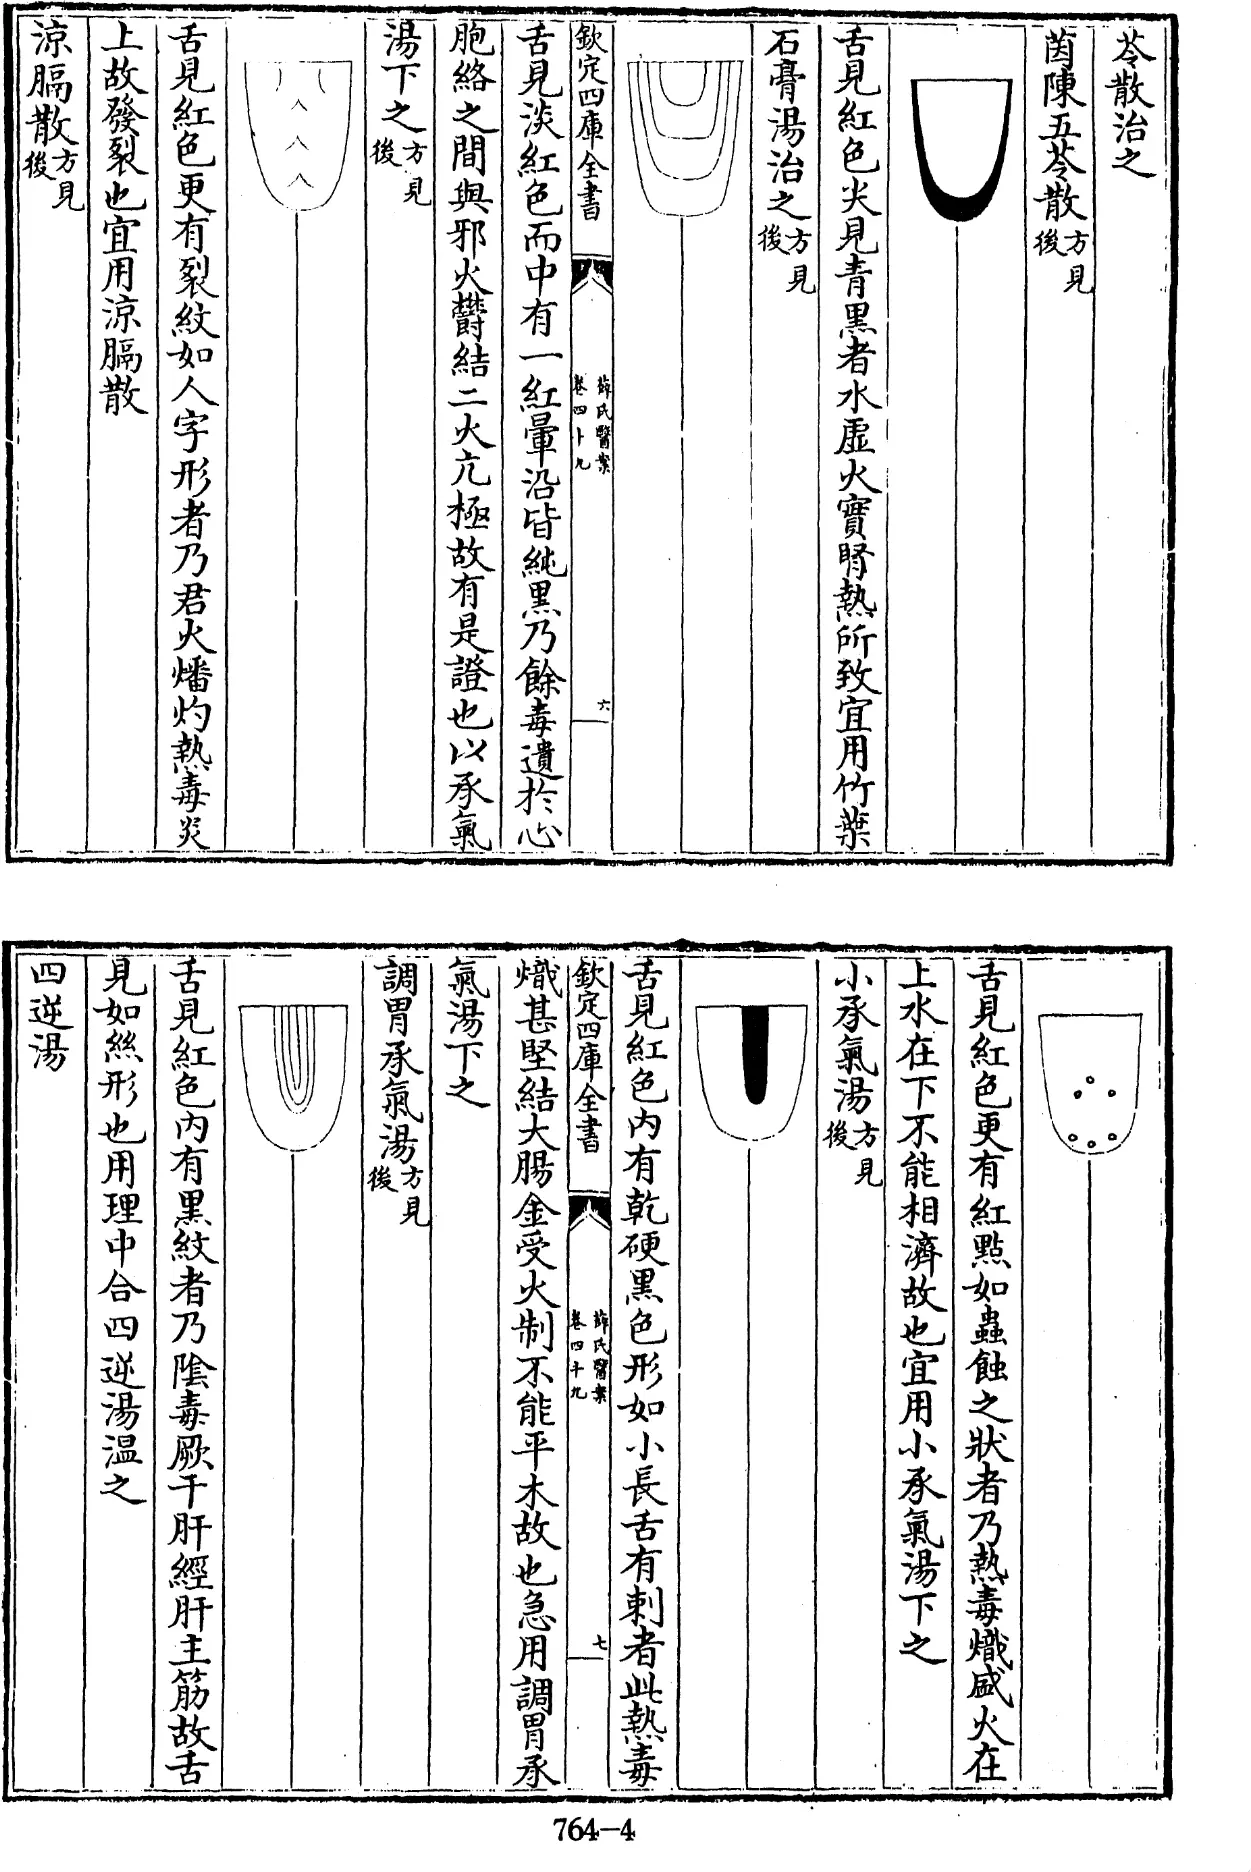 苓散治之
茵陳五苓散方見後
舌見紅色尖見青黑者水虛火實腎熱所致宜用竹葉
石膏湯治之方見後
欽定四庫全書
薛氏醫案
卷四十九
六
舌見淡紅色而中有一紅暈沿皆純黑乃餘毒遺於心
胞絡之間與邪火鬱結二火亢極故有是證也以承氣
湯下之方見後
舌見紅色更有裂紋如人字形者乃君火燔灼熱毒炎
上故發裂也宜用涼膈散
涼膈散方見後
舌見紅色更有紅點如蟲蝕之狀者乃熱毒熾盛火在
上水在下不能相濟故也宜用小承氣湯下之
小承氣湯方見後
舌見紅色內有乾硬黑色形如小長舌有刺者此熱毒
欽定四庫全書
薛氏醫案
卷四十九
七
熾甚堅結大腸金受火制不能平木故也急用調胃承
氣湯下之
調胃承氣湯方見後
舌見紅色內有黑紋者乃陰毒厥于肝經肝主筋故舌
見如絲形也用理中合四逆湯温之
四逆湯
764-4